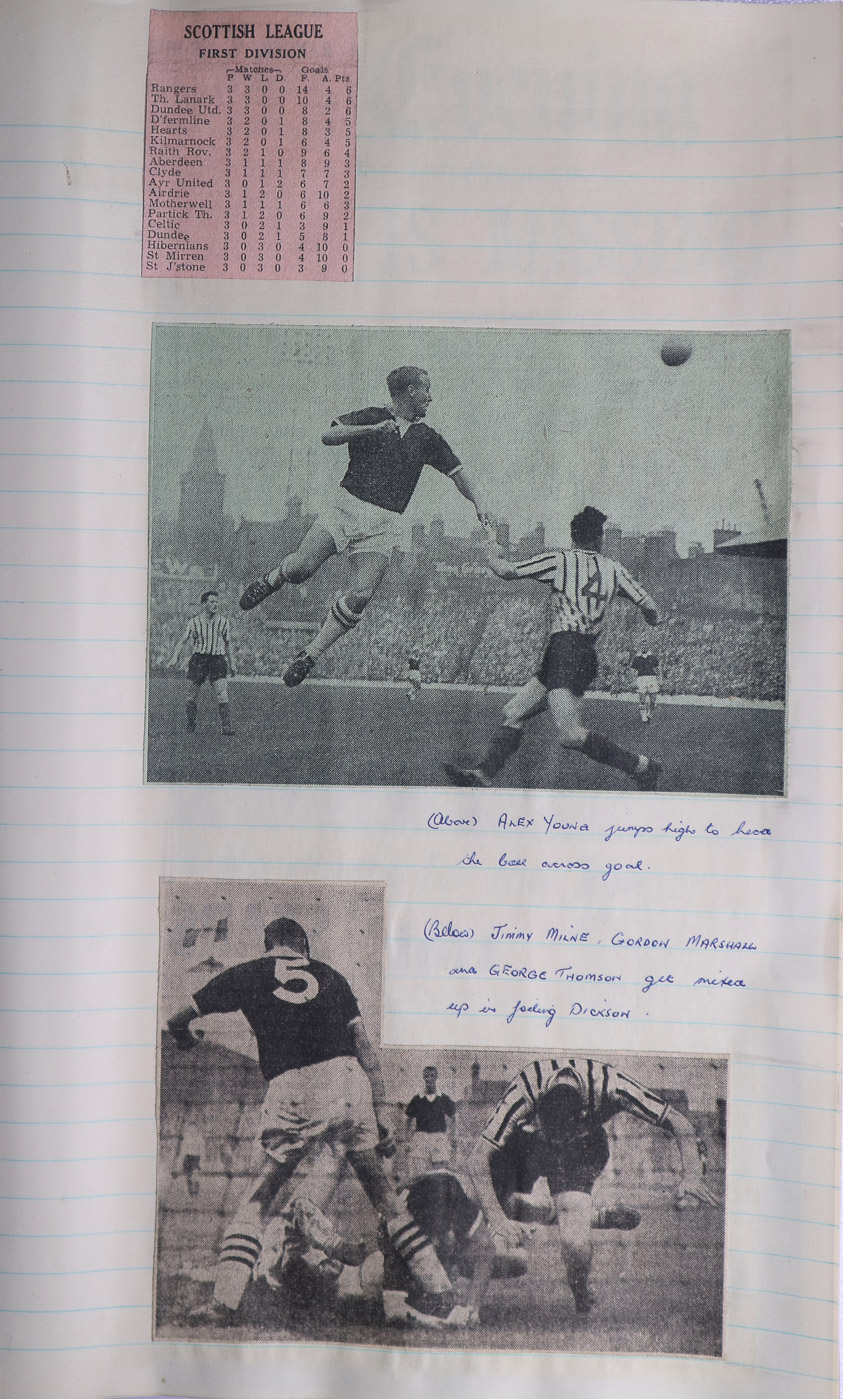 SCOTTISH LEAGUE
FIRST DIVISION
Matches Goals
P W L D F. A. Pts.
Rangers 3 3 0 0 14 4 6
Th. Lanark 3 3 0 0 10 4 6
Dundee Utd. 3 3 0 0 8 2 6
D'fermline 3 2 0 1 8 4 5
Hearts 3 2 0 1 8 3 5
Kilmarnock 3 2 0 1 6 4 5
Raith Rov. 3 2 1 0 9 6 4
Aberdeen 3 1 1 1 8 9 3
Clyde 3 1 1 1 7 7 3
Ayr United 3 0 1 2 6 7 2
Airdrie 3 1 2 0 6 10 2
Motherwell 3 1 1 1 6 6 3
Partick Th. 3 1 2 0 6 9 2
Celtic 3 0 2 1 3 9 1
Dundee 3 0 2 1 5 8 1
Hibernians 3 0 3 0 4 10 0
St Mirren 3 0 3 0 4 10 0
St J'stone 3 0 3 0 3 9 0
4
(Above) ALEX YOUNG jumps high to head
the ball across goal.
(Below) JIMMY MILNE, GORDON MARSHALL
and GEORGE THOMSON get mixed
up in foiling DICKSON.
5